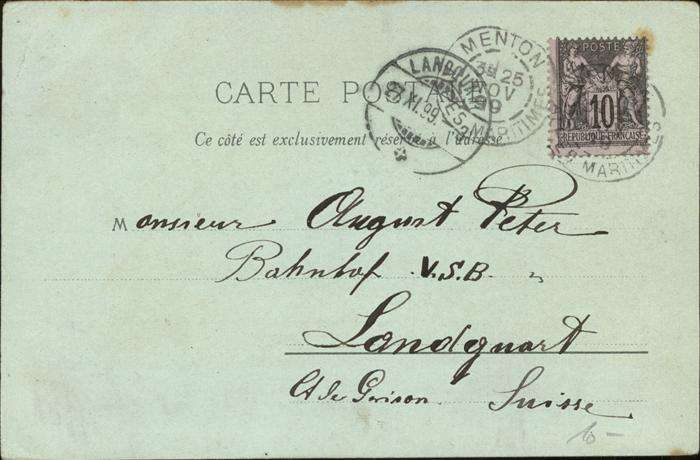 CARTE POSTALE
Ce côté est exclusivement réservé à l'adresse
MENTON
3E 25
NOV
99
MARITIMES
LANDQUART
27.XI.99.
POSTE
10
REPUBLIQUE FRANCAISE
MARITIMES
Monsieur August Peter
Bahnhof V.S.B. "
Landquart
Ct de Grison Suisse
10 -